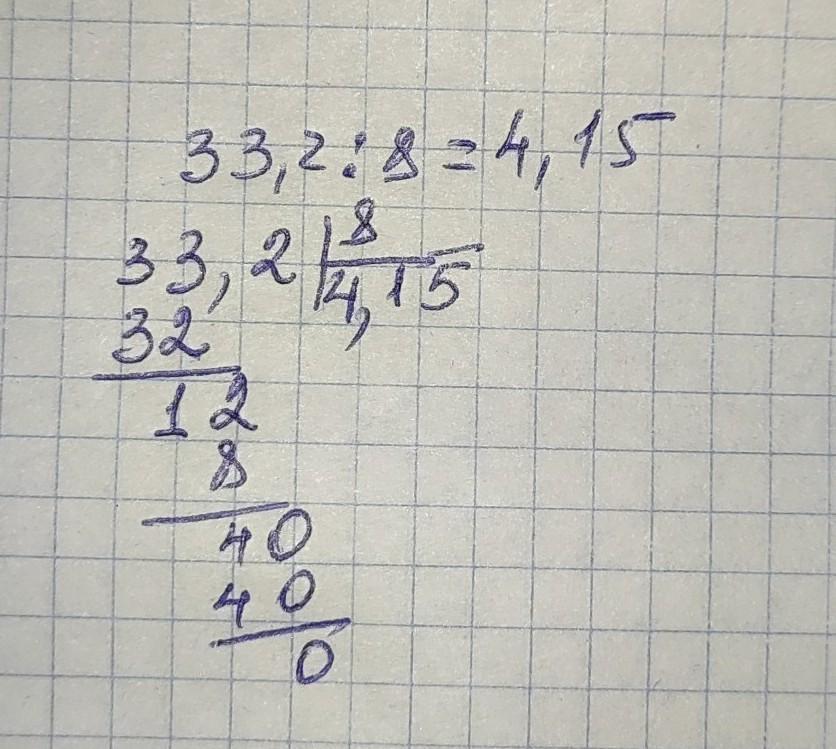 33,2:8=4,15
33,2 8
32 4,15
12
8
40
40
0